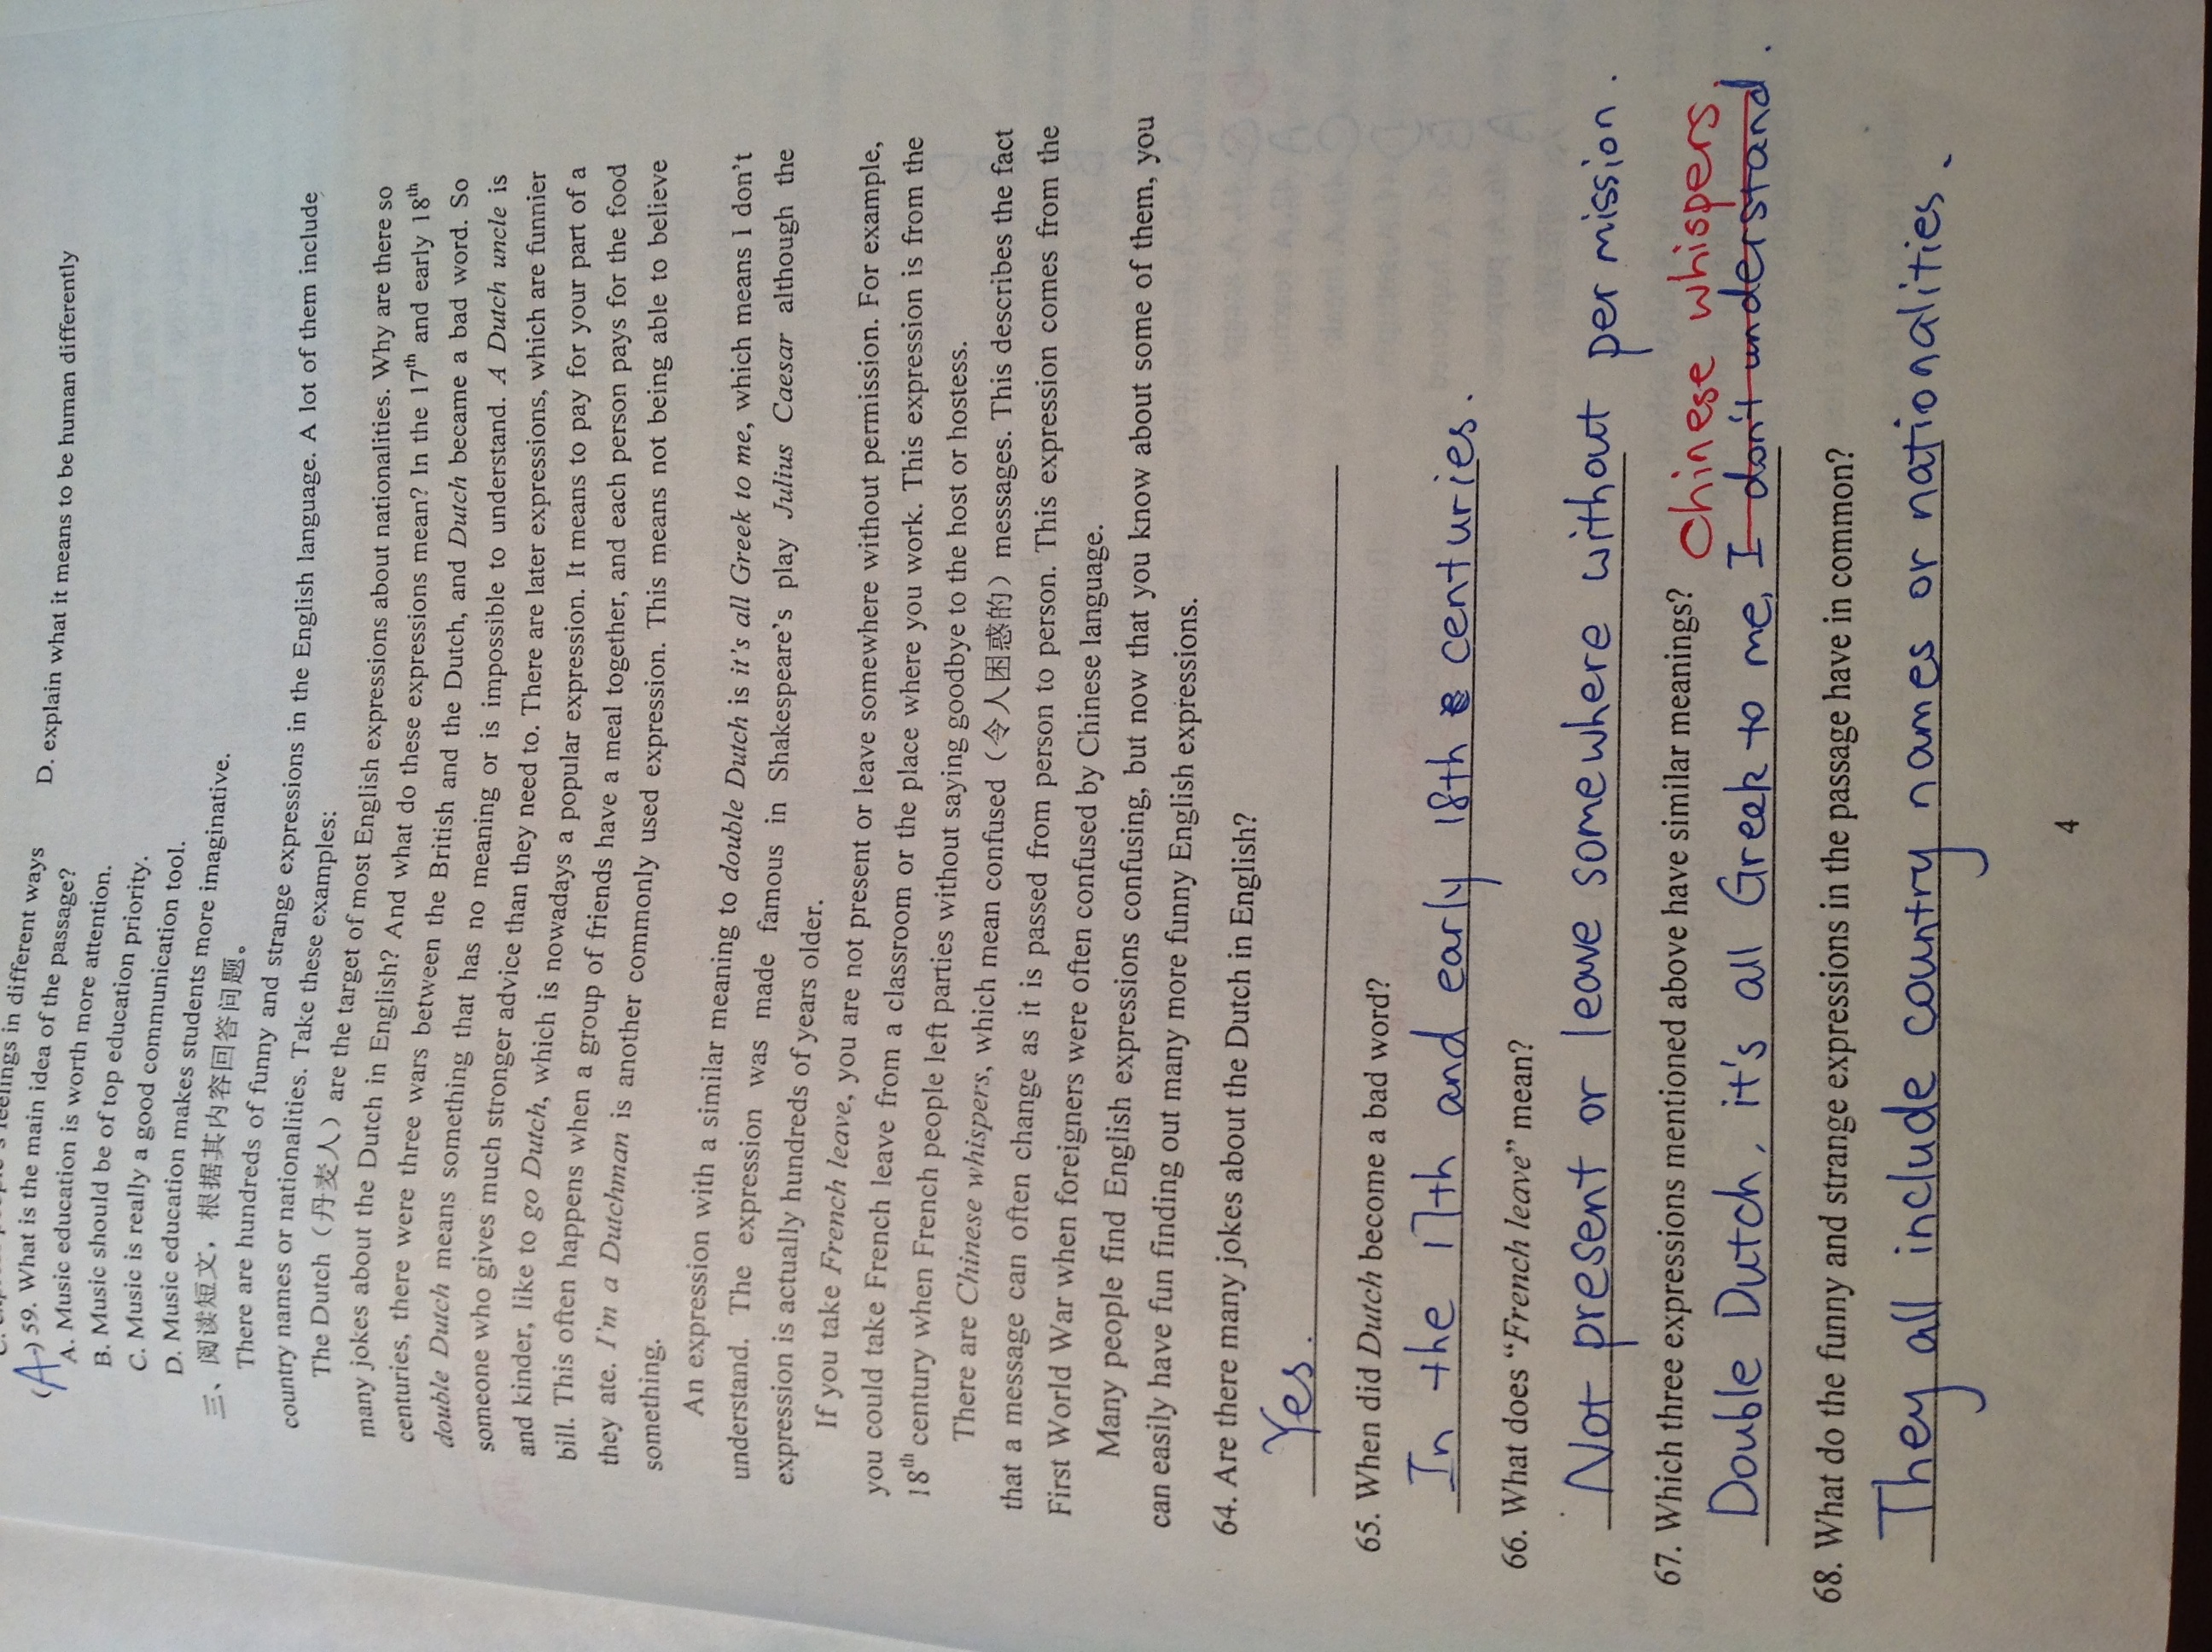 feelings in different ways
D. explain what it means to be human differently
(A) 59. What is the main idea of the passage?
A. Music education is worth more attention.
B. Music should be of top education priority.
C. Music is really a good communication tool.
D. Music education makes students more imaginative.
三、阅读短文，根据其内容回答问题。
There are hundreds of funny and strange expressions in the English language. A lot of them include
country names or nationalities. Take these examples:
The Dutch（丹麦人）are the target of most English expressions about nationalities. Why are there so
many jokes about the Dutch in English? And what do these expressions mean? In the 17th and early 18th
centuries, there were three wars between the British and the Dutch, and Dutch became a bad word. So
double Dutch means something that has no meaning or is impossible to understand. A Dutch uncle is
someone who gives much stronger advice than they need to. There are later expressions, which are funnier
and kinder, like to go Dutch, which is nowadays a popular expression. It means to pay for your part of a
bill. This often happens when a group of friends have a meal together, and each person pays for the food
they ate. I'm a Dutchman is another commonly used expression. This means not being able to believe
something.
An expression with a similar meaning to double Dutch is it's all Greek to me, which means I don't
understand. The expression was made famous in Shakespeare's play Julius Caesar although the
expression is actually hundreds of years older.
If you take French leave, you are not present or leave somewhere without permission. For example,
you could take French leave from a classroom or the place where you work. This expression is from the
18th century when French people left parties without saying goodbye to the host or hostess.
There are Chinese whispers, which mean confused（令人困惑的）messages. This describes the fact
that a message can often change as it is passed from person to person. This expression comes from the
First World War when foreigners were often confused by Chinese language.
Many people find English expressions confusing, but now that you know about some of them, you
can easily have fun finding out many more funny English expressions.
64. Are there many jokes about the Dutch in English?
Yes.
65. When did Dutch become a bad word?
In the 17th and early 18th centuries.
66. What does “French leave” mean?
Not present or leave somewhere without permission.
67. Which three expressions mentioned above have similar meanings?
Chinese whispers.
Double Dutch, it's all Greek to me, I don't understand.
68. What do the funny and strange expressions in the passage have in common?
They all include country names or nationalities.
4